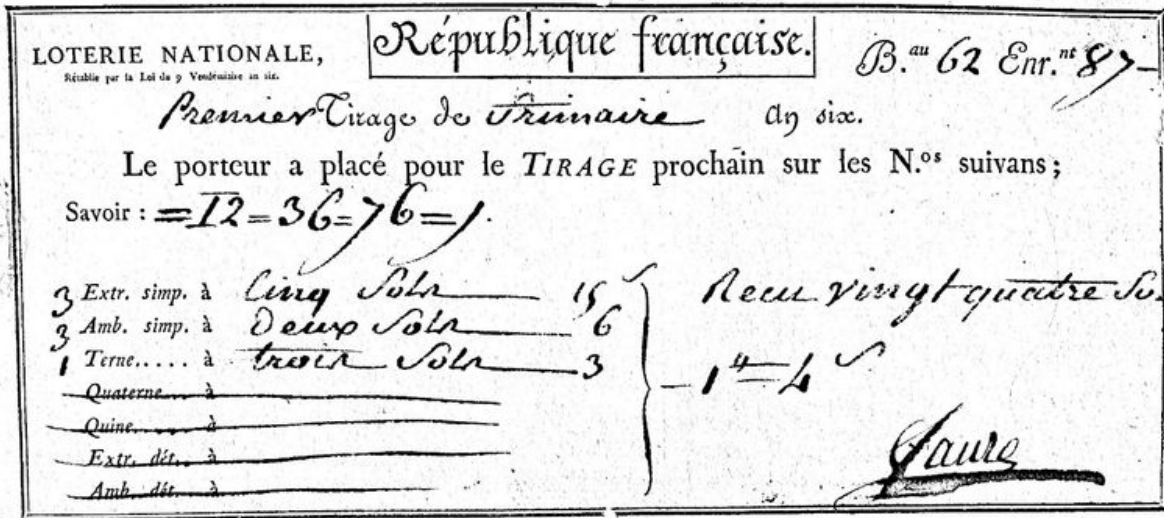 LOTERIE NATIONALE,
Rétablie par la Loi du 9 Vendémiaire an six.
République française.
B.au 62 Enr.nt 87
Premier Tirage de Frimaire An six.
Le porteur a placé pour le TIRAGE prochain sur les N.os suivans;
Savoir : = 12 = 36 = 76 =
3 Extr. simp. à Cinq Sols 15 s
3 Amb. simp. à Deux Sols 6
1 Terne..... à trois Sols 3
Quaterne... à
Quine..... à
Extr. dét.. à
Amb. dét... à
Recu vingt quatre So
1 # 4 s
Faure